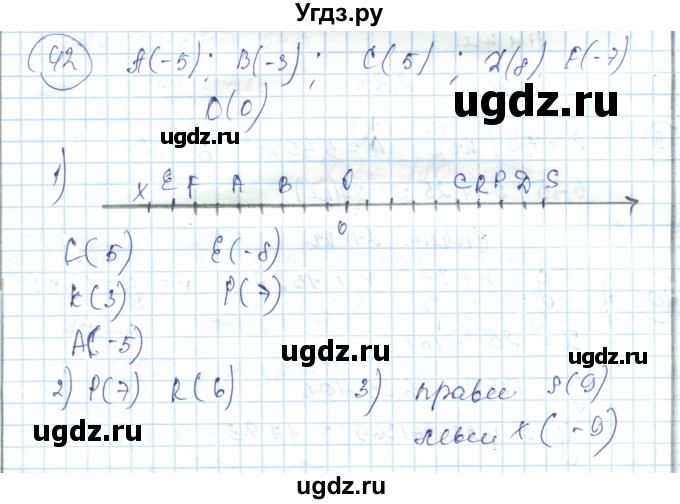 Угдз.ру
42 A(-5); B(-3); C(5); Д(8) F(-7)
O(0)
ugdz.ru
ugdz.ru
1)
X E F A B O C R P D S
0
C(5) E(-8)
K(3) P(7)
A(-5)
ugdz.ru
ugdz.ru
2) P(7) R(6) 3) правы S(9)
левы X(-9)
ugdz.ru
ugdz.ru